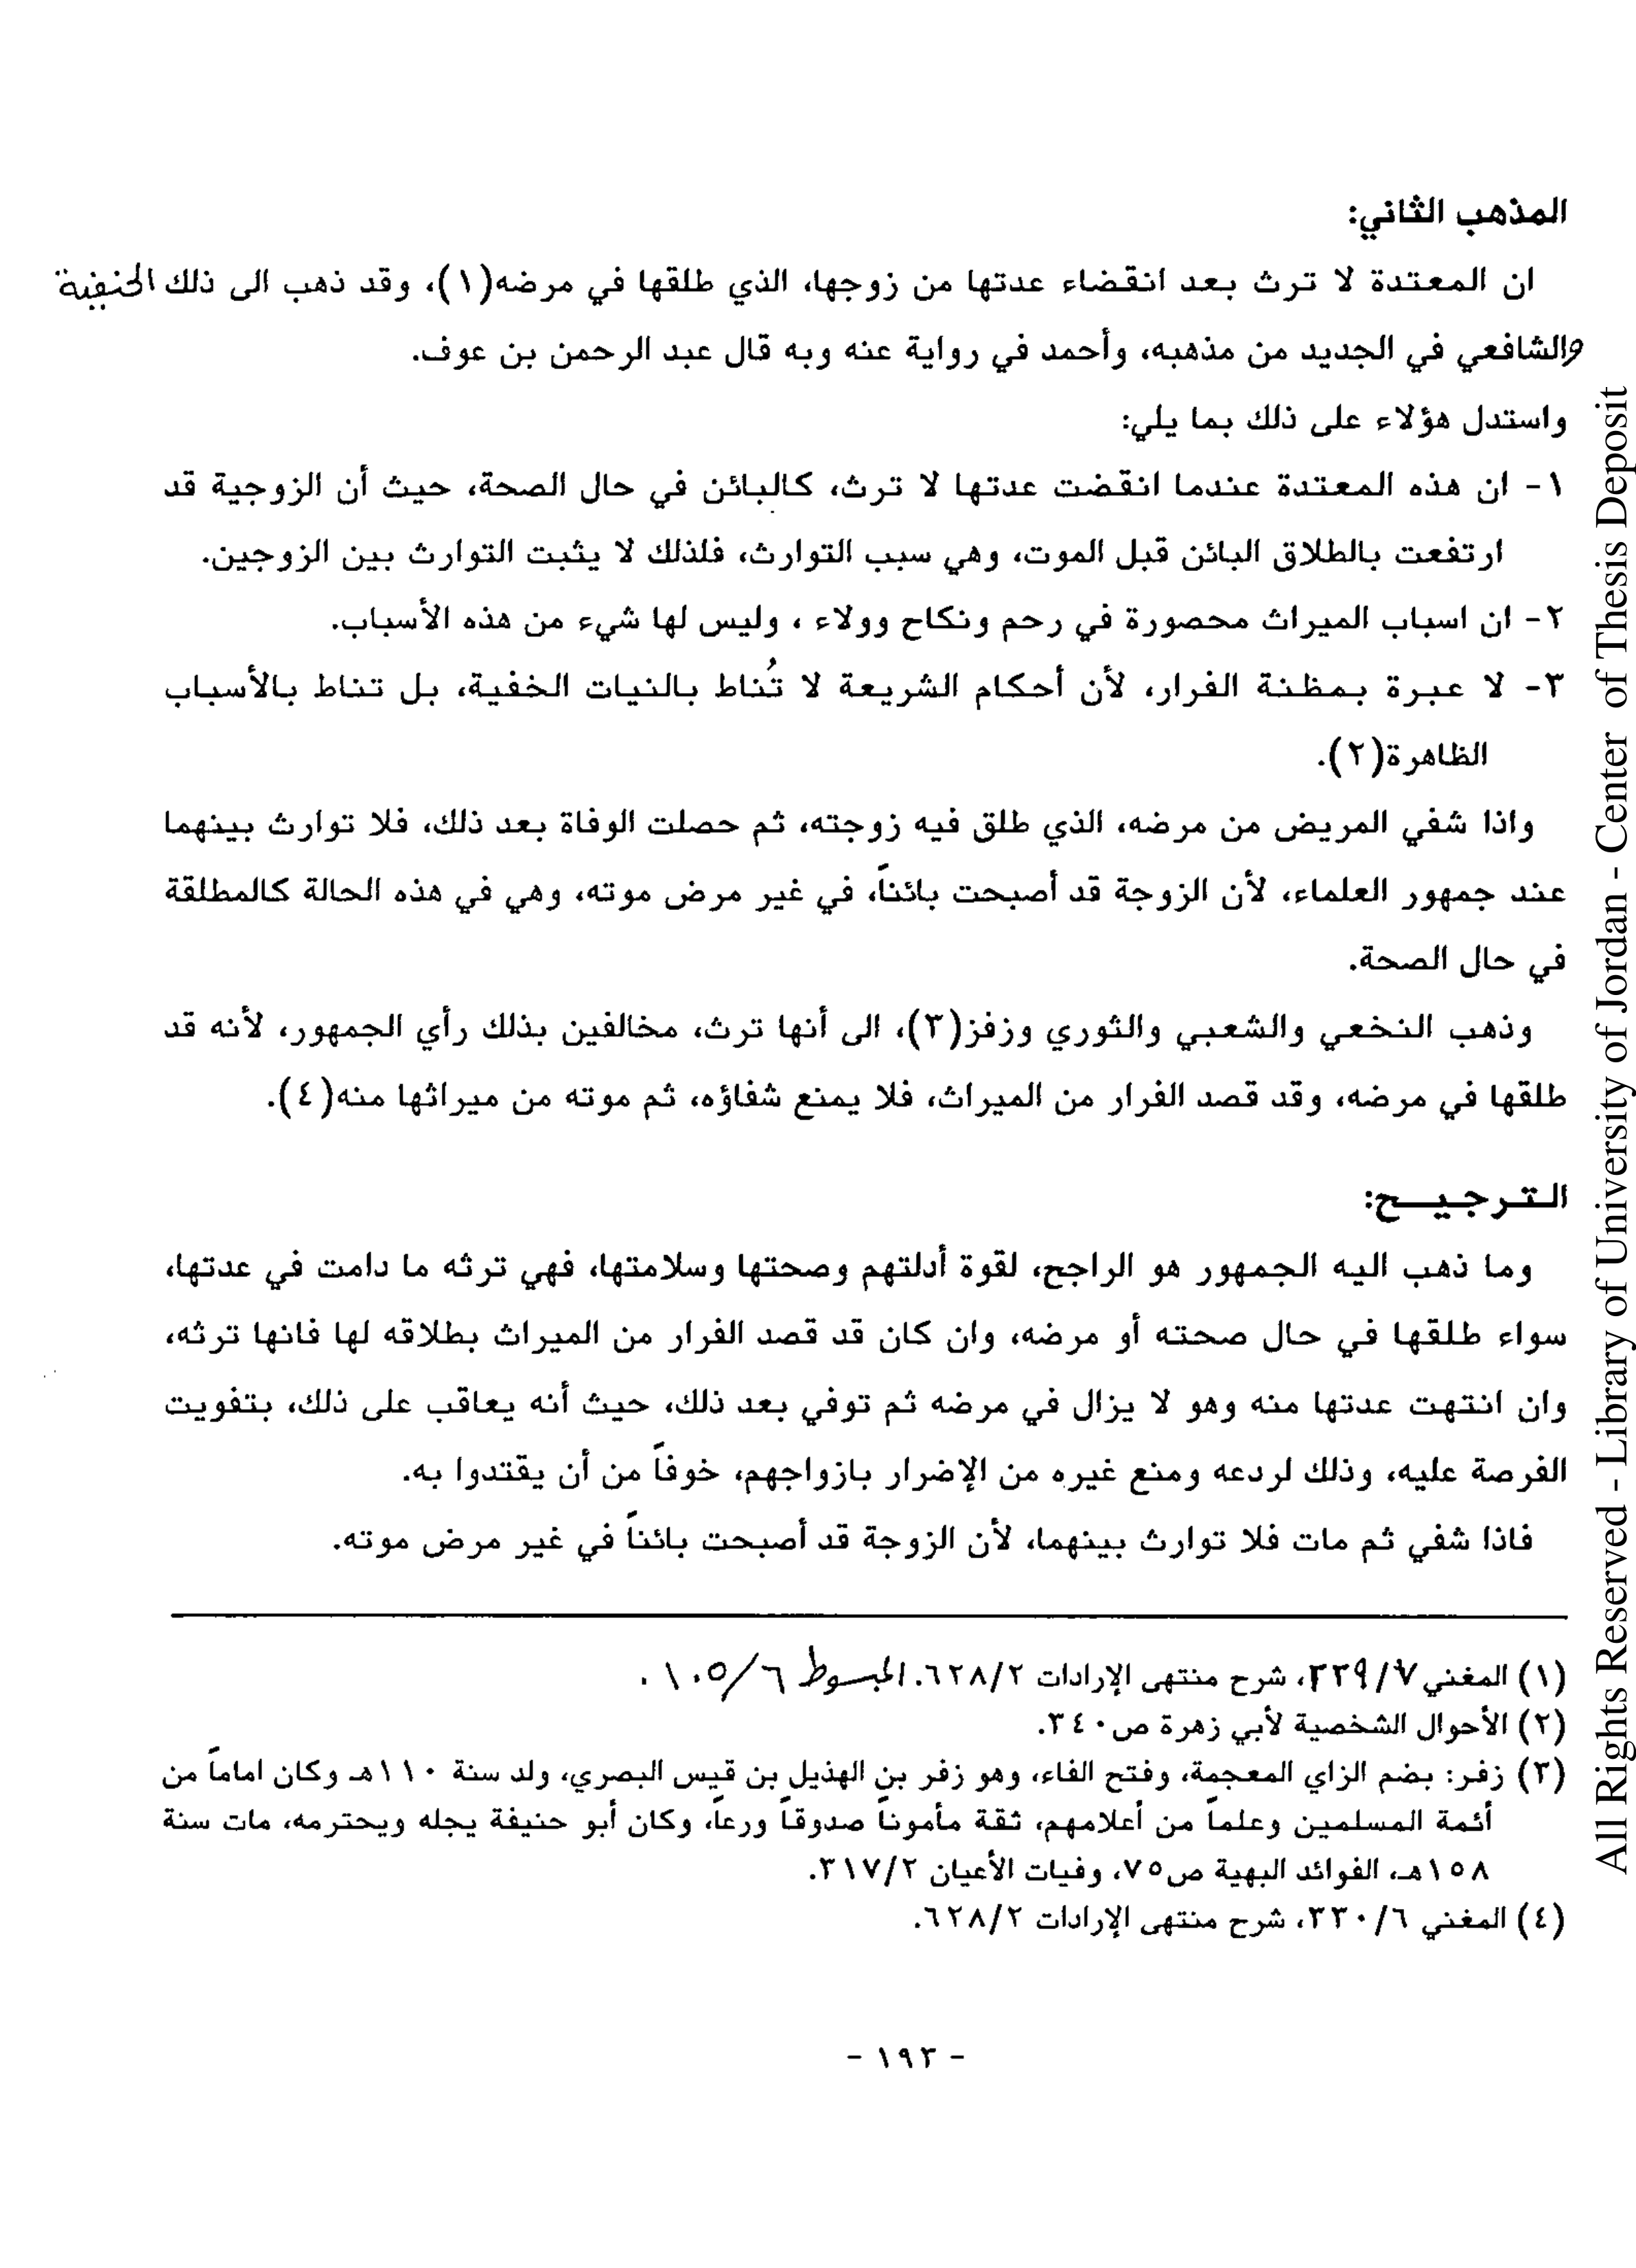 المذهب الثاني:
ان المعتدة لا ترث بعد انقضاء عدتها من زوجها، الذي طلقها في مرضه(١)، وقد ذهب الى ذلك الحنفية
والشافعي في الجديد من مذهبه، وأحمد في رواية عنه وبه قال عبد الرحمن بن عوف.
واستدل هؤلاء على ذلك بما يلي:
١- ان هذه المعتدة عندما انقضت عدتها لا ترث، كالبائن في حال الصحة، حيث أن الزوجية قد
ارتفعت بالطلاق البائن قبل الموت، وهي سبب التوارث، فلذلك لا يثبت التوارث بين الزوجين.
٢- ان اسباب الميراث محصورة في رحم ونكاح وولاء ، وليس لها شيء من هذه الأسباب.
٣- لا عبرة بمظنة الفرار، لأن أحكام الشريعة لا تُناط بالنيات الخفية، بل تناط بالأسباب
الظاهرة(٢).
واذا شفي المريض من مرضه، الذي طلق فيه زوجته، ثم حصلت الوفاة بعد ذلك، فلا توارث بينهما
عند جمهور العلماء، لأن الزوجة قد أصبحت بائناً، في غير مرض موته، وهي في هذه الحالة كالمطلقة
في حال الصحة.
وذهب النخعي والشعبي والثوري وزفز(٣)، الى أنها ترث، مخالفين بذلك رأي الجمهور، لأنه قد
طلقها في مرضه، وقد قصد الفرار من الميراث، فلا يمنع شفاؤه، ثم موته من ميراثها منه(٤).
الترجيح:
وما ذهب اليه الجمهور هو الراجح، لقوة أدلتهم وصحتها وسلامتها، فهي ترثه ما دامت في عدتها،
سواء طلقها في حال صحته أو مرضه، وان كان قد قصد الفرار من الميراث بطلاقه لها فانها ترثه،
وان انتهت عدتها منه وهو لا يزال في مرضه ثم توفي بعد ذلك، حيث أنه يعاقب على ذلك، بتفويت
الفرصة عليه، وذلك لردعه ومنع غيره من الإضرار بازواجهم، خوفاً من أن يقتدوا به.
فاذا شفي ثم مات فلا توارث بينهما، لأن الزوجة قد أصبحت بائناً في غير مرض موته.
(١) المغني ٢٢٩/٧، شرح منتهى الإرادات ٦٢٨/٢. المبسوط ١٠٥/٦.
(٢) الأحوال الشخصية لأبي زهرة ص٣٤٠.
(٣) زفر: بضم الزاي المعجمة، وفتح الفاء، وهو زفر بن الهذيل بن قيس البصري، ولد سنة ١١٠هـ وكان اماماً من
أئمة المسلمين وعلماً من أعلامهم، ثقة مأموناً صدوقاً ورعاً، وكان أبو حنيفة يجله ويحترمه، مات سنة
١٥٨هـ، الفوائد البهية ص٧٥، وفيات الأعيان ٣١٧/٢.
(٤) المغني ٣٣٠/٦، شرح منتهى الإرادات ٦٢٨/٢.
- ١٩٣ -
All Rights Reserved - Library of University of Jordan - Center of Thesis Deposit